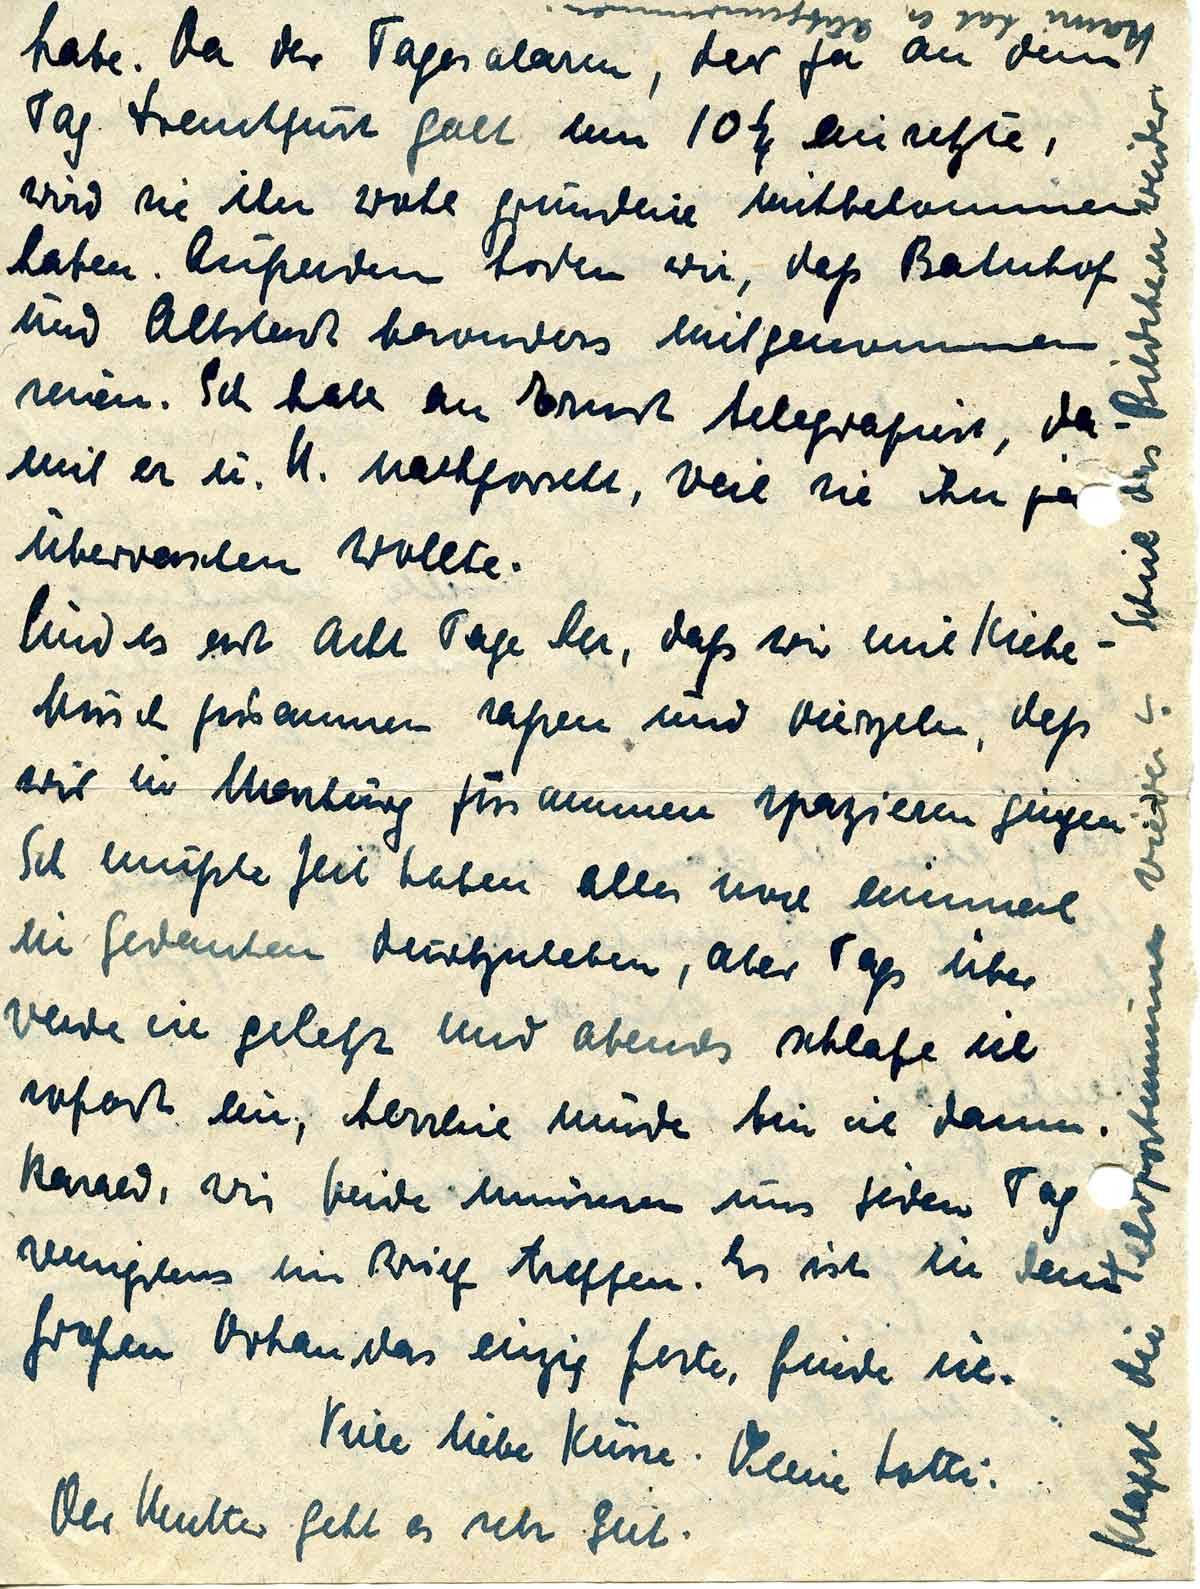 habe. Da der Tagesalarm, der ja an dem
Tag Frankfurt galt um 10¼ einsetzte,
wird sie ihn wohl gründlich mitbekommen
haben. Außerdem hörten wir, daß Bahnhof
und Altstadt besonders mitgenommen
seien. Ich habe an Ernst telegrafiert, da-
mit er u. U. nachforscht, weil sie ihn ja
überraschen wollte.
Und es erst acht Tage her, daß wir mit Kiebe-
busch zusammen saßen und vierzehn, daß
wir in Marburg zusammen spazieren gingen
Ich müßte Zeit haben alles noch einmal
in Gedanken durchzuleben, aber Tags über
werde ich gehetzt und abends schlafe ich
sofort ein, herrlich müde bin ich dann.
wir beide müssen uns jeden Tag
wenigstens im Brief treffen. Es ist in dem
großen Orkan das einzig feste, finde ich.
Viele liebe Küsse. Deine Lotti.
Der Mutter geht es sehr gut.
Klappt die Feldpostnummer wieder? – Schick das Bildchen weiter
hat er